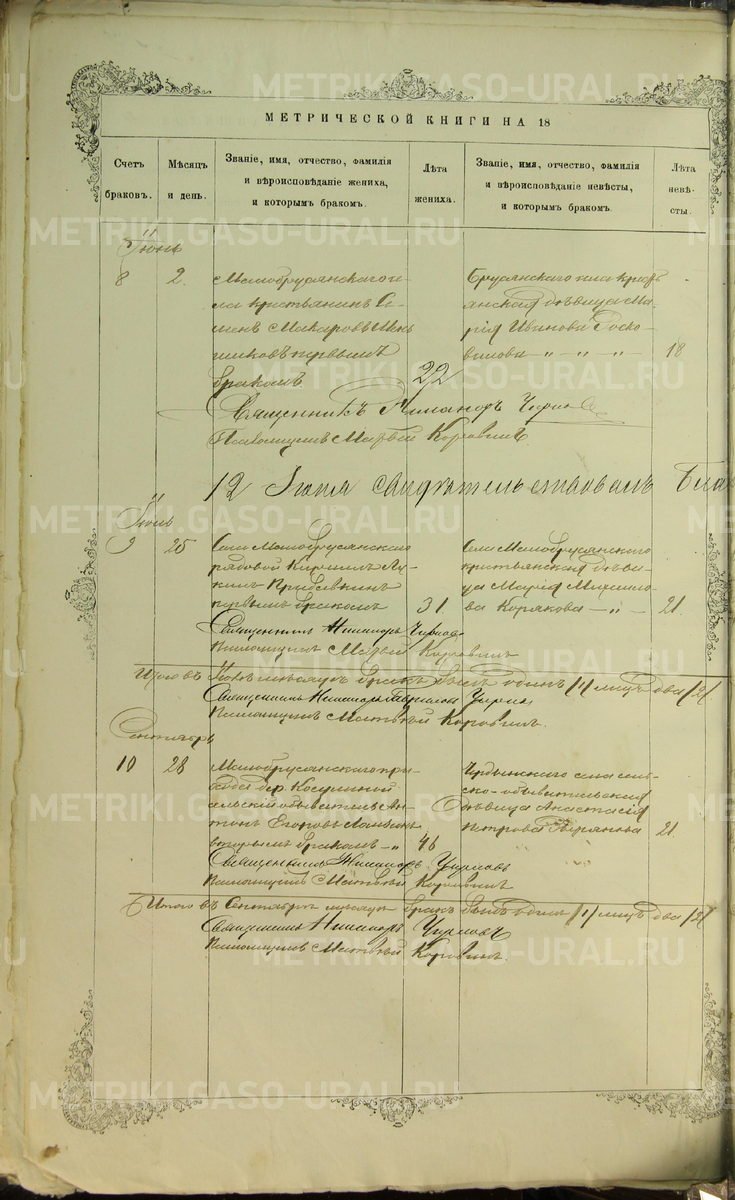 МЕТРИЧЕСКОЙ КНИГИ НА 18
Счетъ браковъ.
Мѣсяцъ и день.
Званіе, имя, отчество, фамилія
и вѣроисповѣданіе жениха,
и которымъ бракомъ.
Лѣта жениха.
Званіе, имя, отчество, фамилія
и вѣроисповѣданіе невѣсты,
и которымъ бракомъ.
Лѣта невѣсты.
Іюнь
8 2
Малобрусянскаго се
ла крестьянинъ Се
менъ Макаровъ
первымъ
бракомъ
22
Брусянскаго села кресть
янская дѣвица Ма
рія Иванова
18
Священникъ Никаноръ
Псаломщикъ Матвѣй Коровинъ
12 Іюля свидѣтельствовалъ
Іюль
9 25
Села Малобрусянскаго
рядовой Кириллъ Лу
кинъ
первымъ бракомъ
31
Села Малобрусянскаго
крестьянская дѣви
ца Марія
Корякова
21
Священникъ Никаноръ
Псаломщикъ Матвѣй Коровинъ
Итого въ Іюлѣ мѣсяцѣ бракъ былъ одинъ /1/ лицъ два /2/
Священникъ Никаноръ
Псаломщикъ Матвѣй Коровинъ
Сентябрь
10 28
Малобрусянскаго при
хода дер. Косулиной
сельскій обыватель Ан
тонъ Егоровъ
вторымъ бракомъ
46
села сель
ско-обывательская
дѣвица Анастасія
Петрова
21
Священникъ Никаноръ
Псаломщикъ Матвѣй Коровинъ
Итого въ Сентябрѣ мѣсяцѣ бракъ былъ одинъ /1/ лицъ два /2/
Священникъ Никаноръ
Псаломщикъ Матвѣй Коровинъ
METRIKI.GASO-URAL.RU